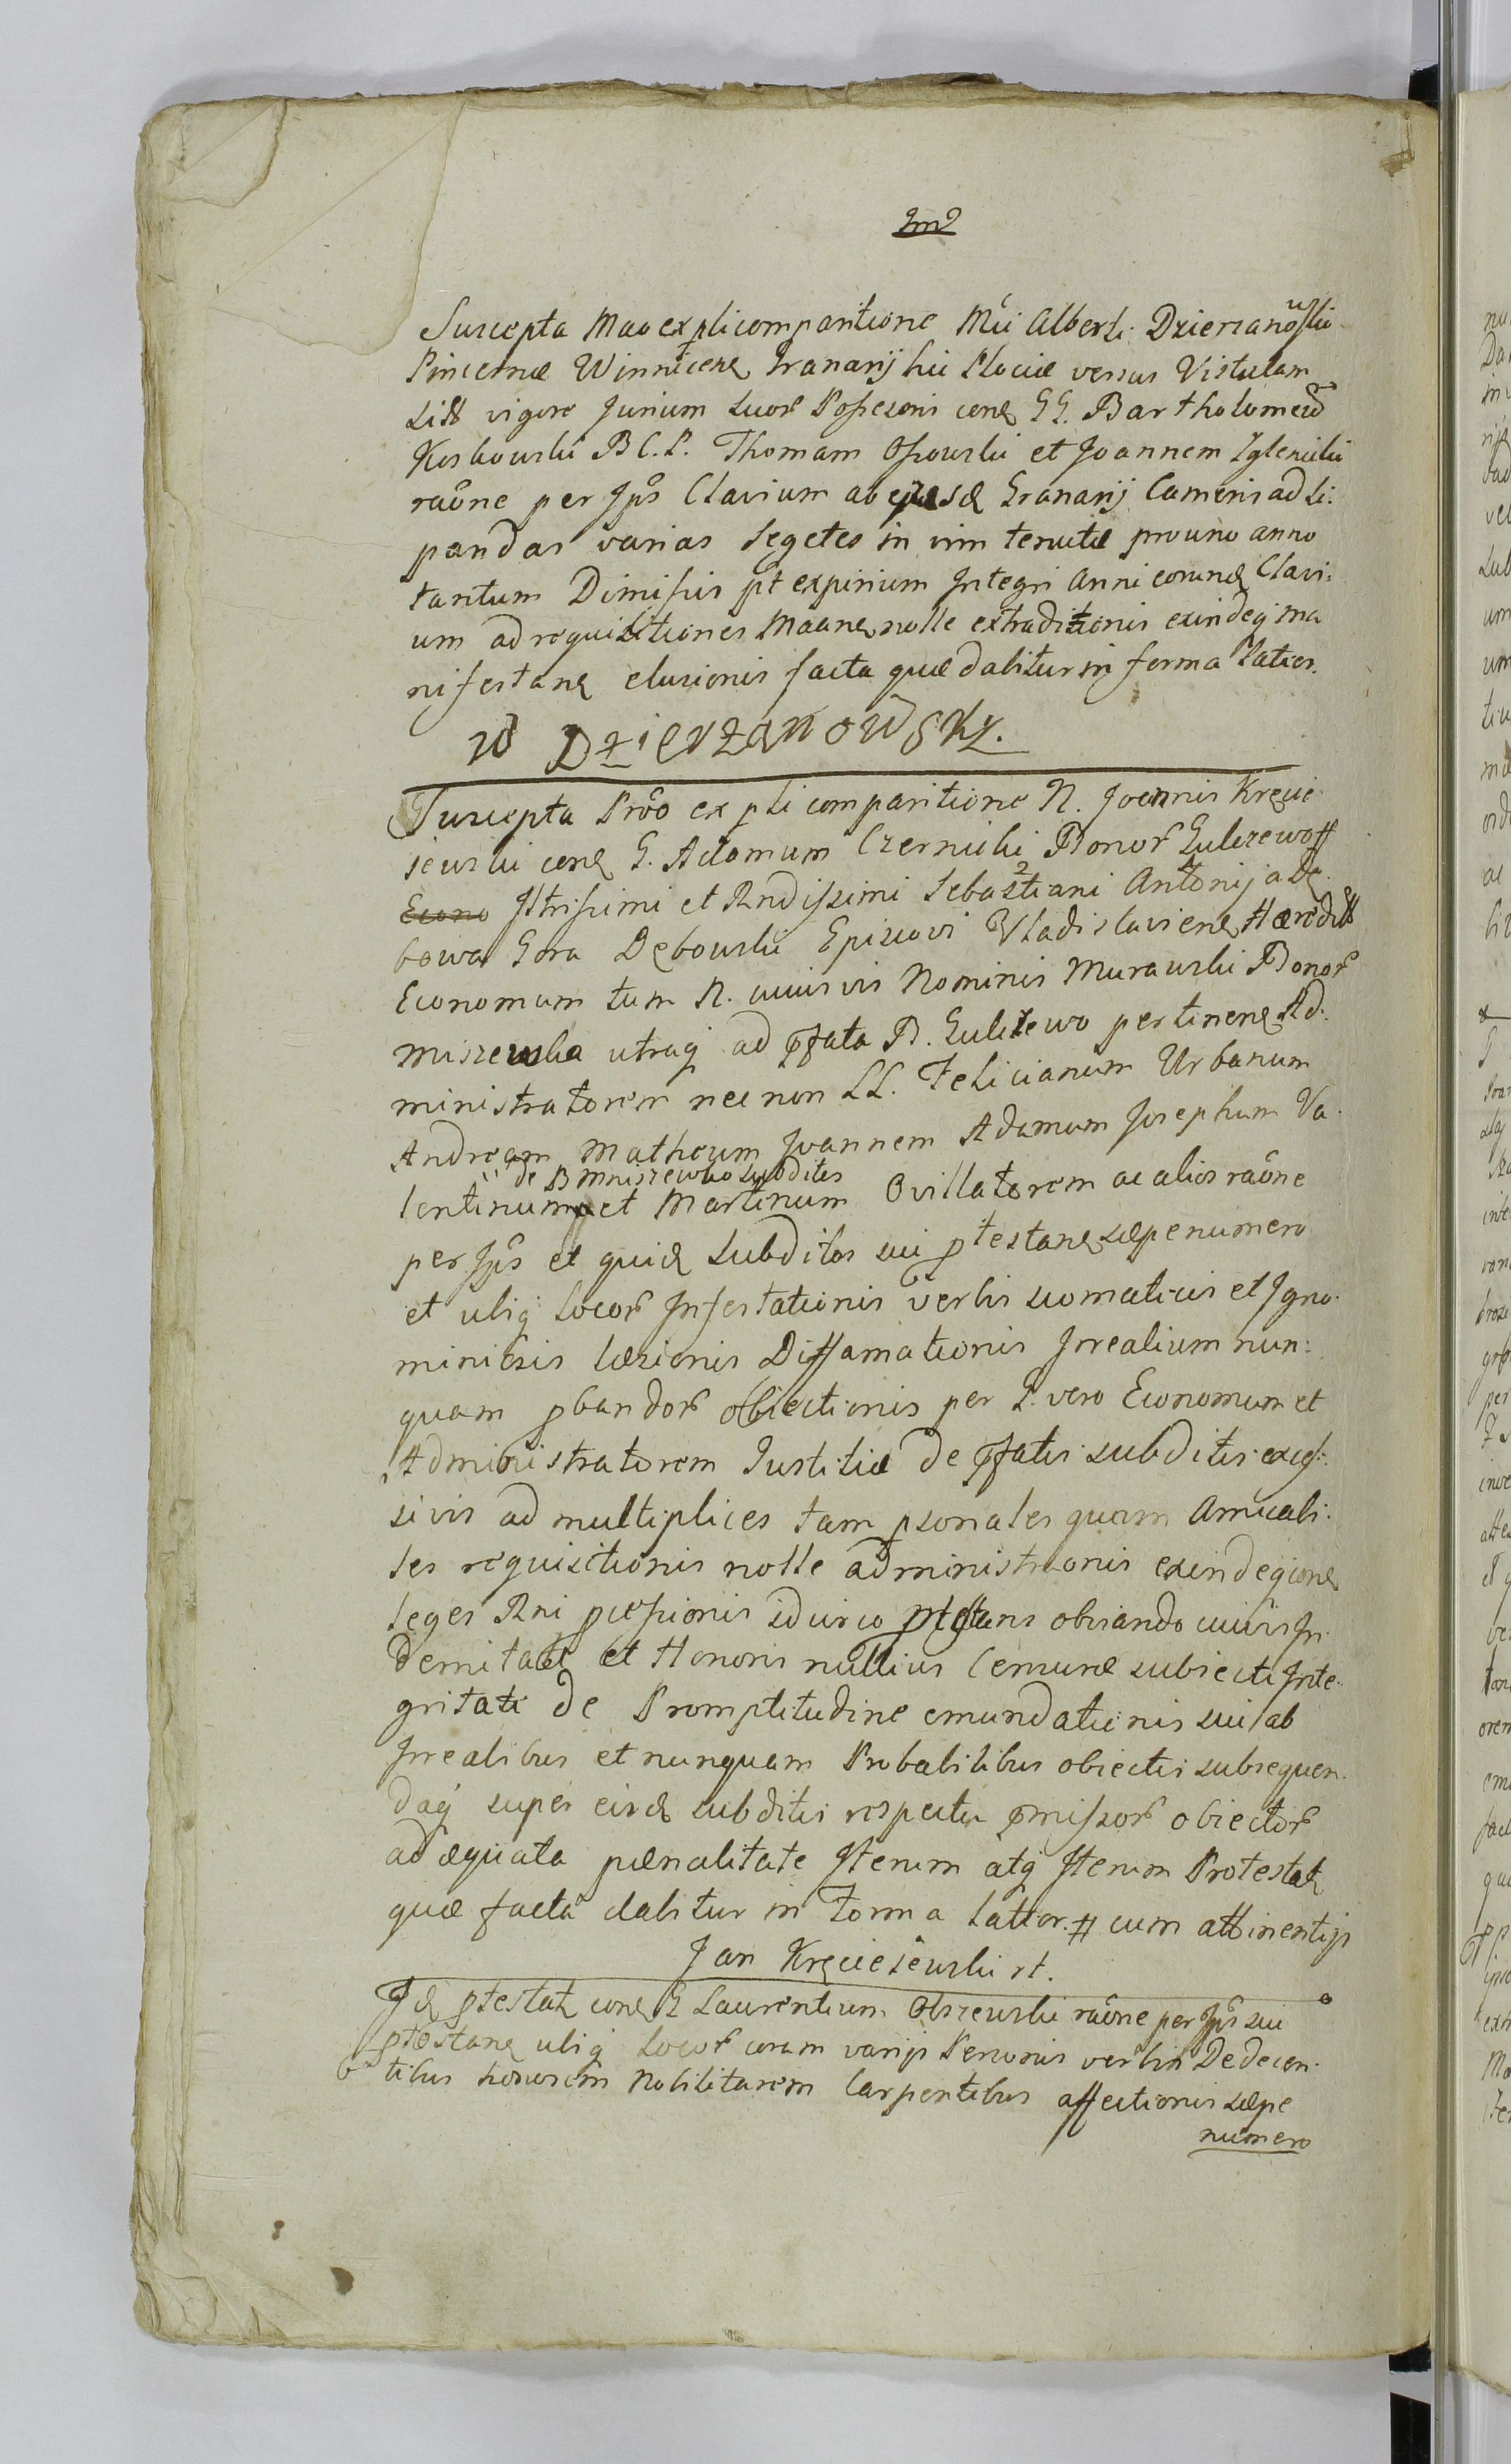 Suscepta Maõ ex pli comparitione Mci Alberti Dzierzanowski
Pincernæ Winnicen Granarij hic Plociæ versus Vistulam
vigore Jurium suor Possessoris con GG. Bartholomeum
Koskowski B.C.P. Thomam Opowski et Joannem Zglenicki
raõne per Ipõs Clavium ab ejusd Granarij Cameris ad li:
pandas varias segetes in vim tenutæ pro uno anno
tantum Dimissis pt expirium Integri Anni eorund Clavi:
um ad requisitiones Maan nolle extraditionis exindeq ma
nifestan elusionis facta quæ dabitur in forma latior.
W Dzierzanowsky.
Suscepta Prõo ex pli comparitione N. Joannis Kręcie
iewski con G. Adamum Czernicki Bonor Gulczewo
Illrissimi et Rndissimi Sebastiani Antonij a Dę
bowa Gora Dębowski Episcopi Vladislavien Hæredit
Economum tum N. cuiusvis Nominis Murawski Bonor
Miszewska utraq ad pfata B. Gulczewo pertinen Ad:
ministratorem nec non LL. Felicianum Urbanum
Andream Matheum Joannem Adamum Josephum Va
de B Mniszewko subditos
lentinum et Martinum Ovillatorem ac alios raõne
per Ipõs et quid subditos sui ptestan sæpenumero
et ubiq locor Infestationis verbis scomaticis et Igno
miniosis læsionis Diffamationis Irrealium nun:
quam pbandor obiectionis per G. vero Economum et
Administratorem Justitiæ de pfatis subditis
sivis ad multiplices tam psonales quam Amicabi:
les requisitionis nolle administraonis
leges Rni idcirco ptestans obviando cuivis In
demnitati et Honoris nullius Censuræ subiecti Inte
gritati de Promptitudine emundationis sui ab
Irrealibus et nunquam Probabilibus obiectis subsequen
daq super eisd subditis respectu pmissor obiector
adæquata pænalitate Iterum atq Iterum Protestat
quæ facta dabitur in Forma latior. # cum attinentijs
Jan Kręcieiewski rt.
Id ptestat con G Laurentium Obrzewski raõne per Ipõs sui
ptestan ubiq locor coram varijs Personis verbis Dedecen
tibus honorem Nobilitarem Carpentibus affectionis sæpe
numero